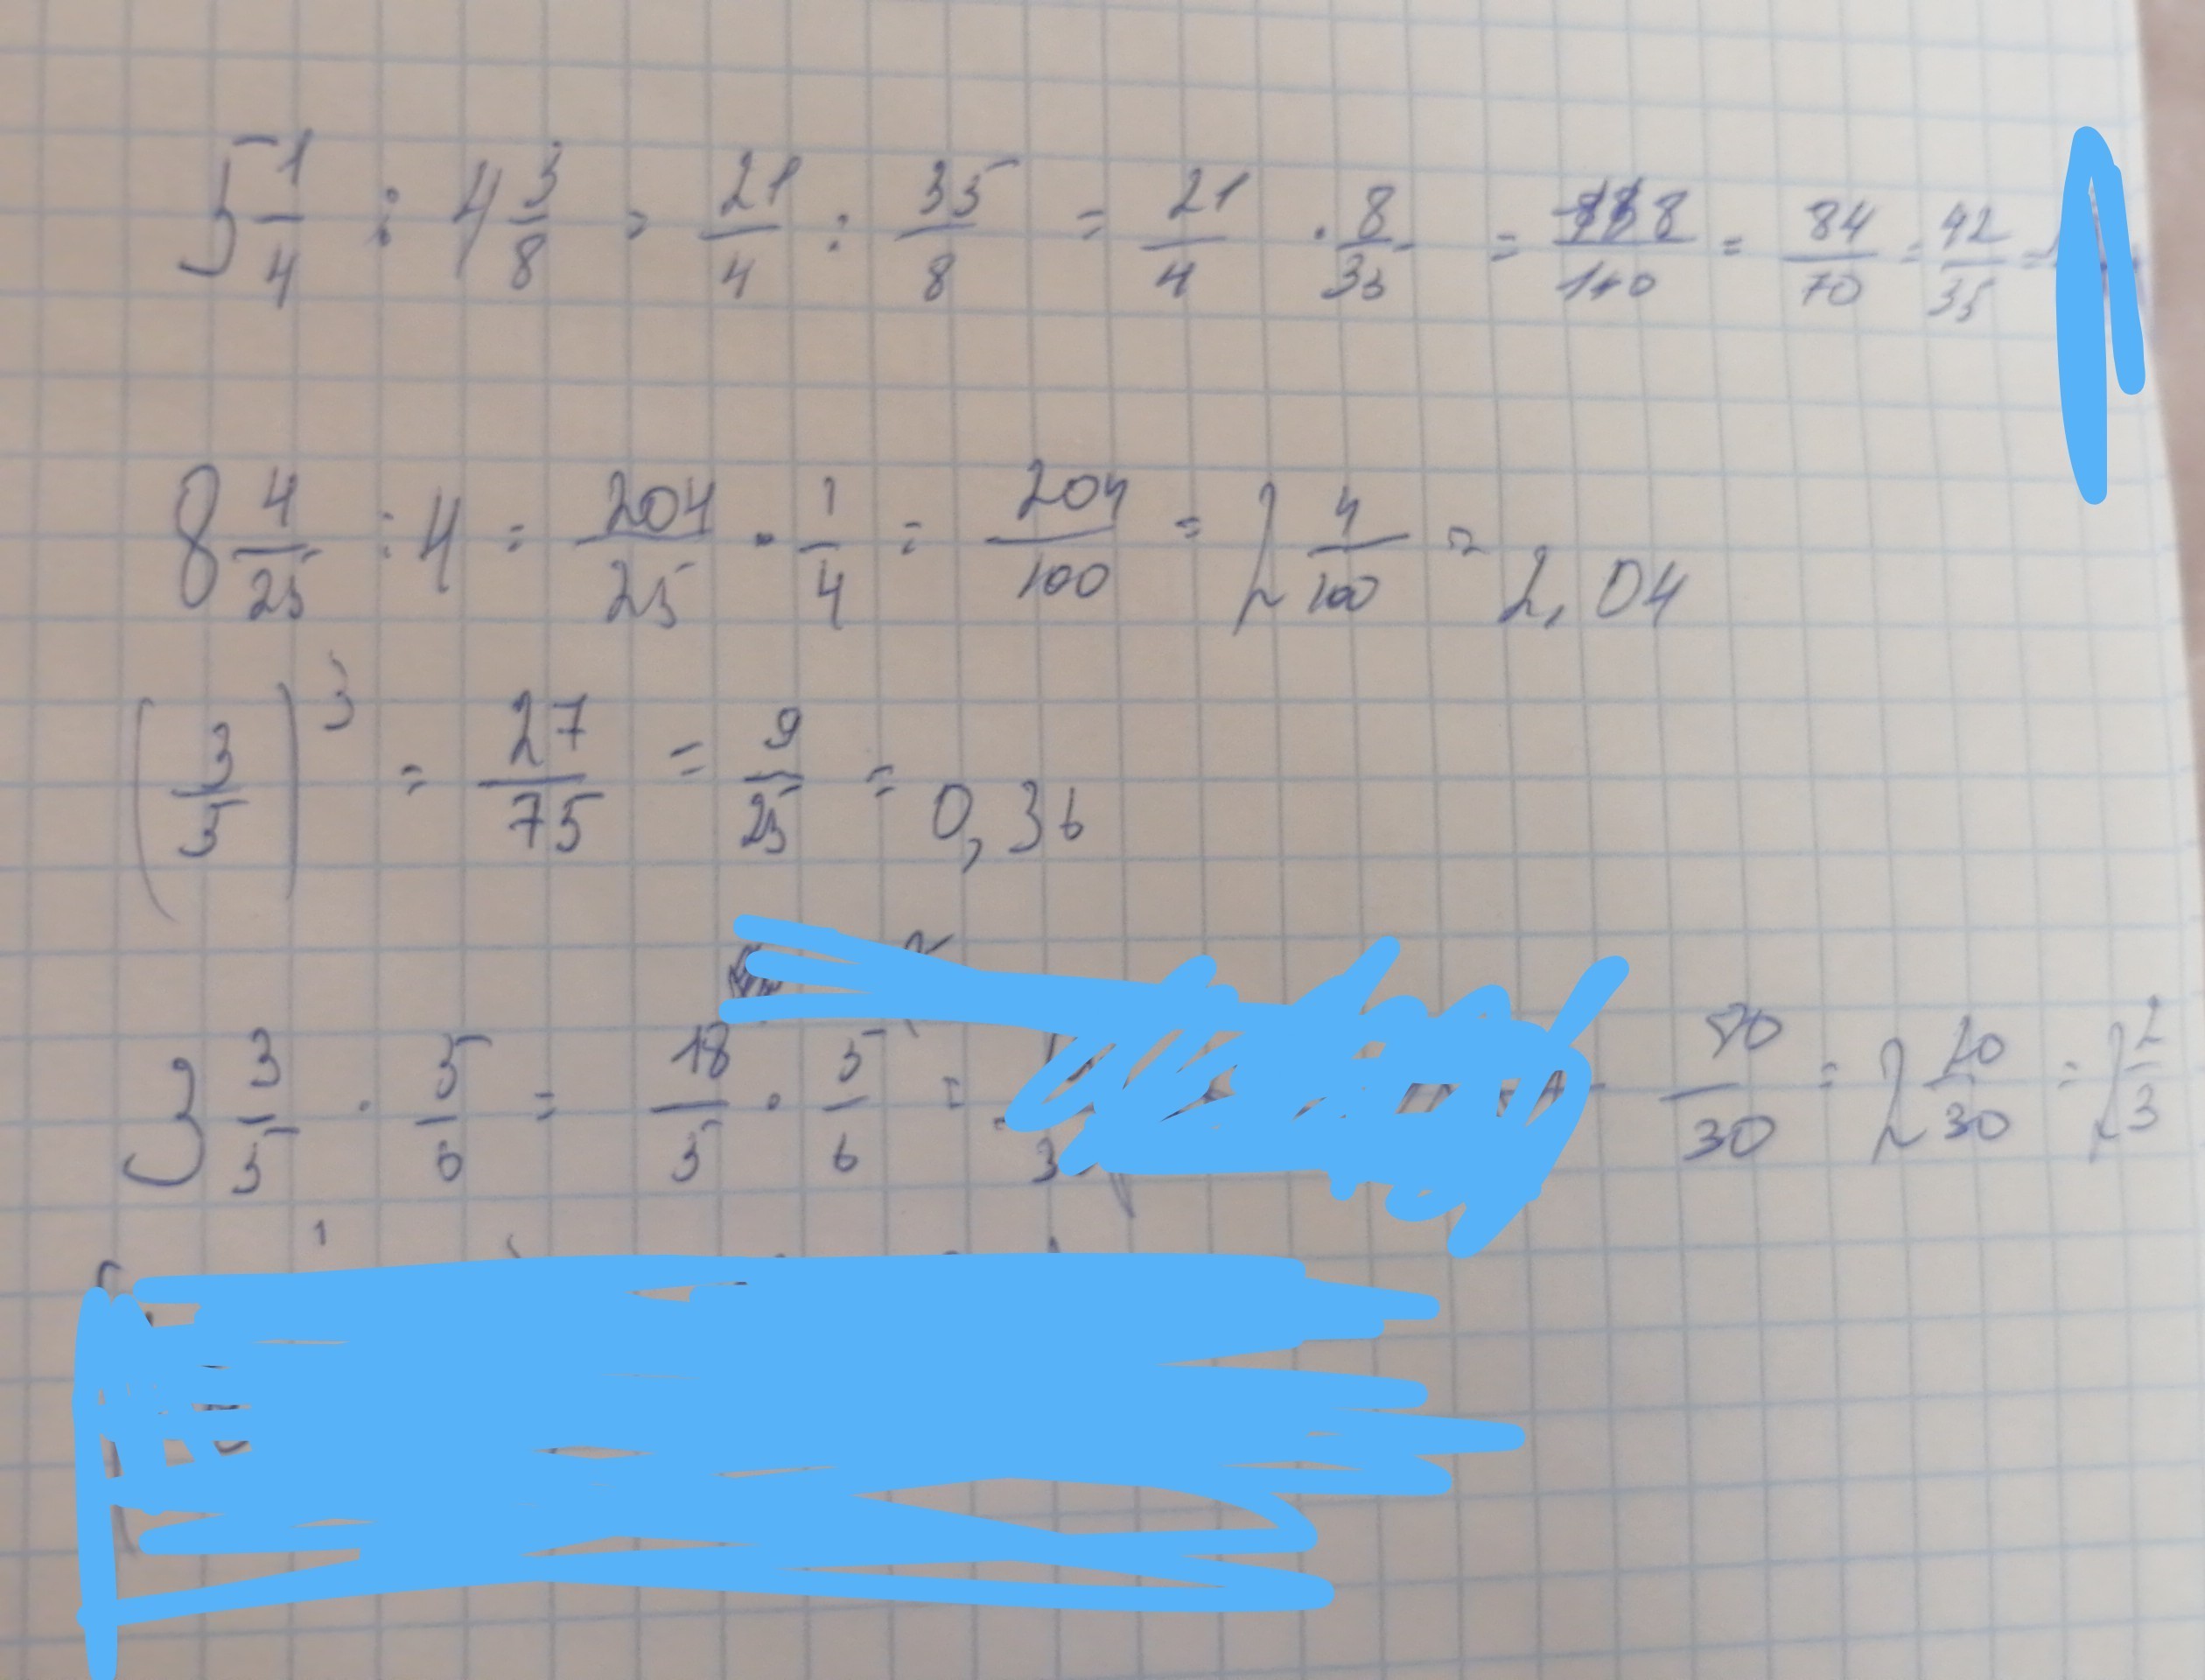 5 1/4 : 4 3/8 = 21/4 : 35/8 = 21/4 · 8/35 = 168/140 = 84/70 = 42/35 =
8 4/25 : 4 = 204/25 · 1/4 = 204/100 = 2 4/100 = 2,04
(3/5)^3 = 27/75 = 9/25 = 0,36
3 3/5 · 5/6 = 18/5 · 5/6 = 80/30 = 2 20/30 = 2 2/3